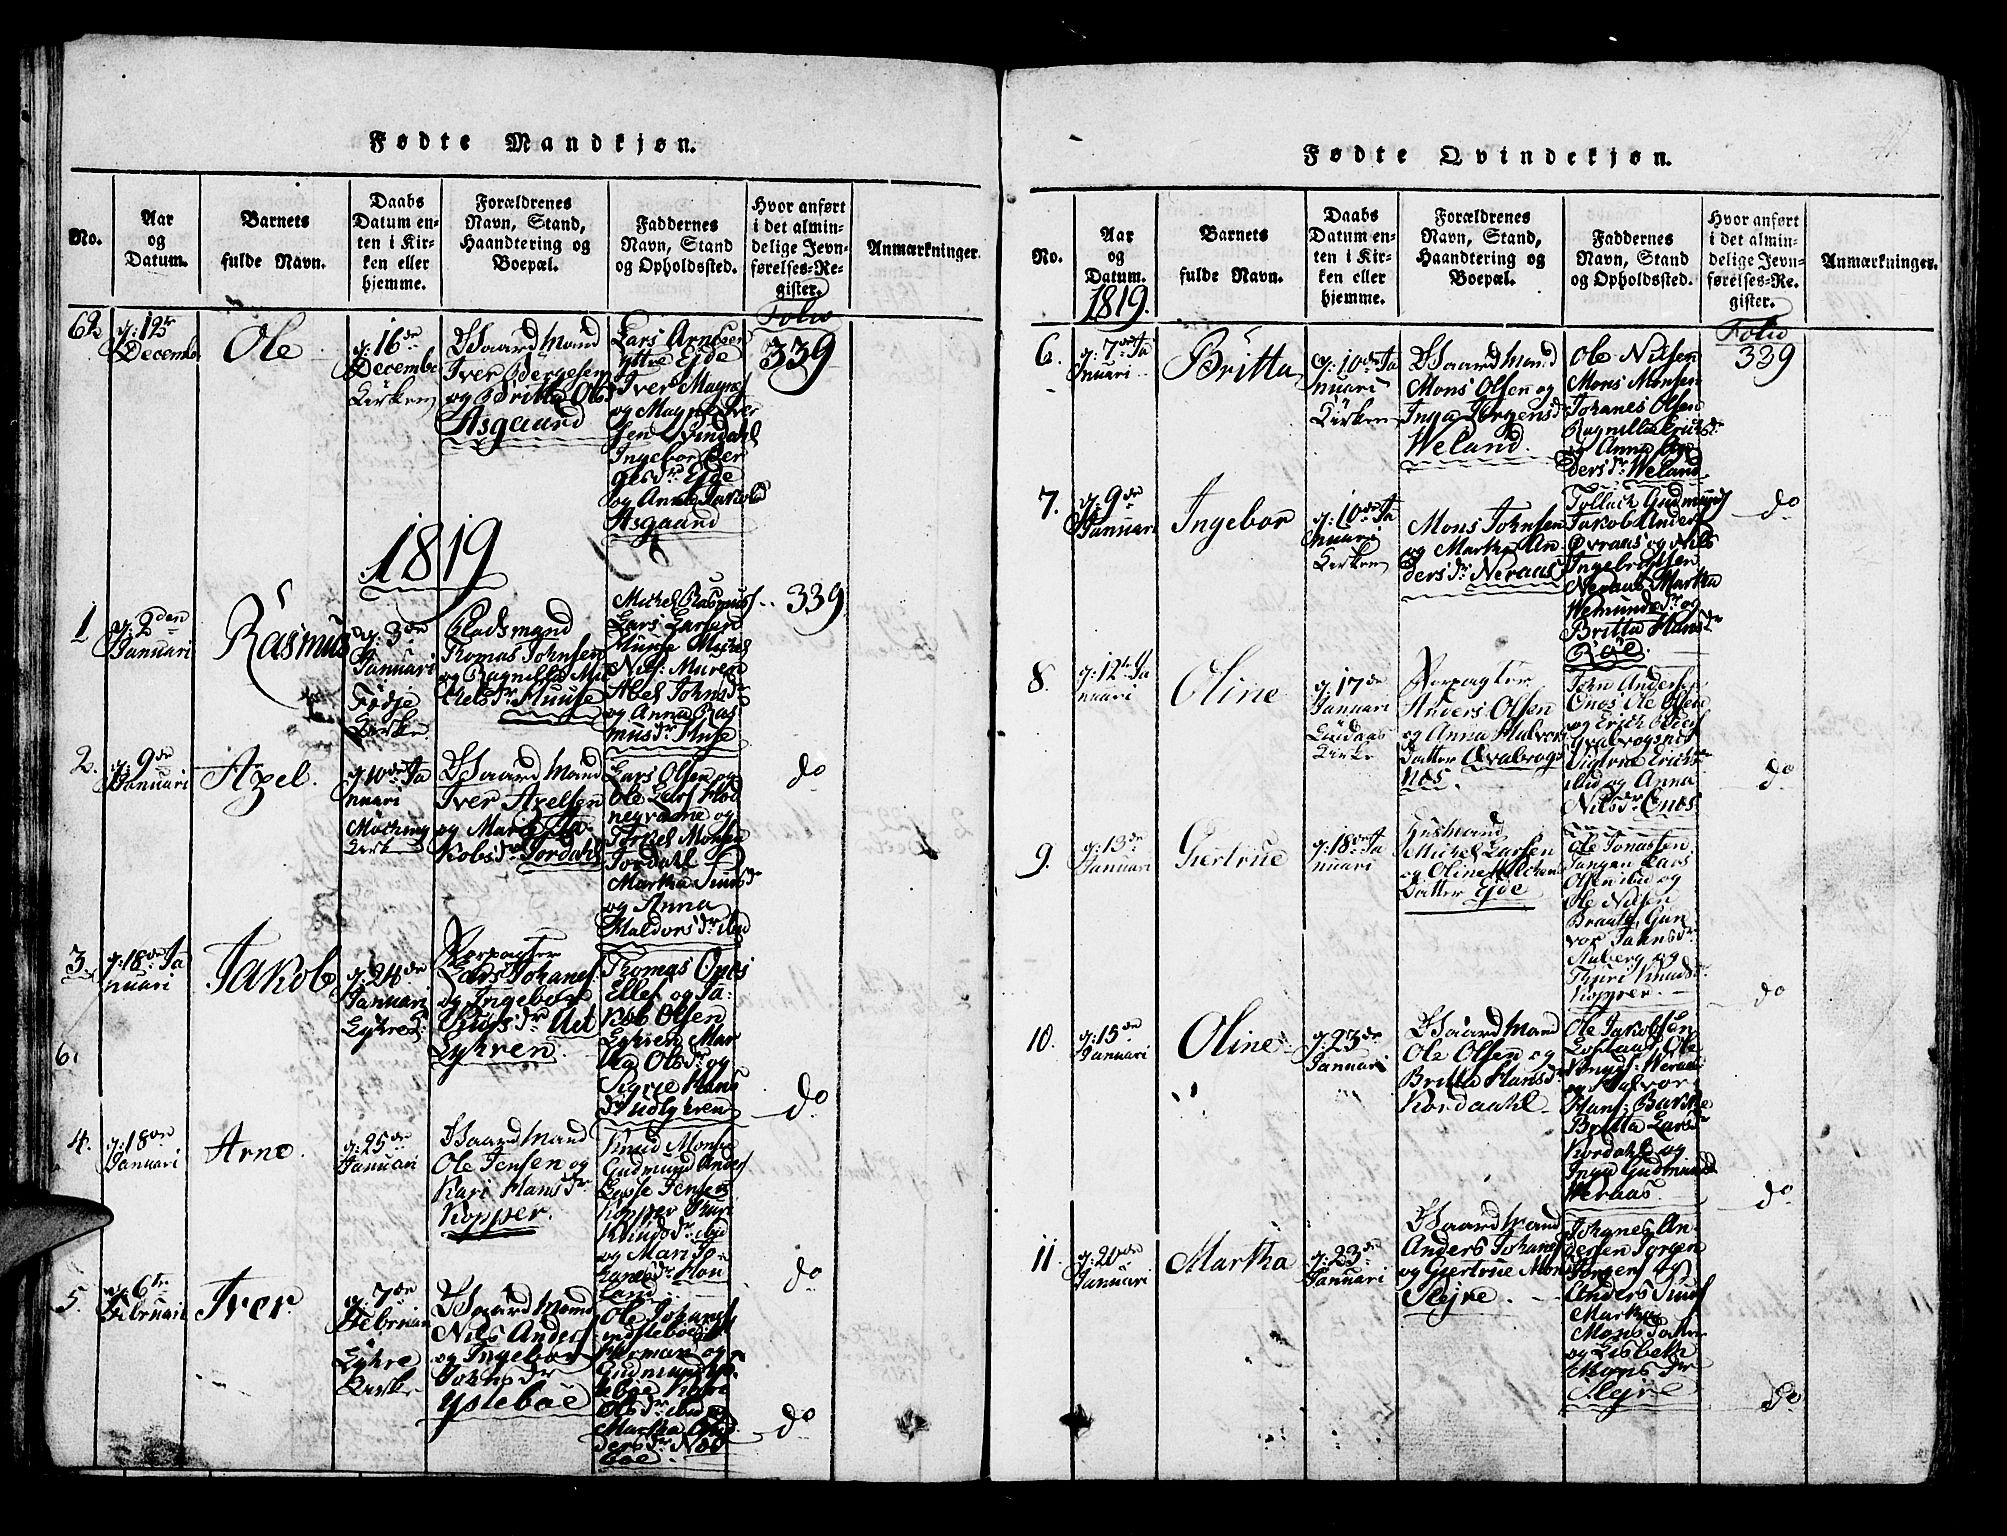 Fødte Mandkjøn.
No.
Aar
og
Datum.
Barnets
fulde Navn.
Daabs
Datum en-
ten i Kir-
ken eller
hjemme.
Forældrenes
Navn, Stand,
Haandtering og
Boepæl.
Faddernes
Navn, Stand
og Opholdssted.
Hvor anført
i det almin-
delige Jevn-
førelses-Re-
gister.
Anmærkninger.
Folio
62
d: 12te
Decemb.
Ole
d: 16de
Decembe
Kirken
Gaardmand
Iver Børgesen
og Britta Ols
Asgaard
Lars Arnesen
yttre Eide
Iver Magnes
og Magne Iver
sen Qvindahl
Ingebor Ber
gesdr Eide
og Anna Jakobsd
Asgaard
339
1819
1
d: 2den
Januari
Rasmus
d: 3de
Januari
Fødje
Kirke
Gladsmand
Tomas Johnsen
og Ragnilla Mi
chelsdr Muuse
Michel Rasmuss
Lars Larsen
Muuse Michel
Nils: Maren
Abel Johnsdr
og Anna Ras
musdr Muse
339
2.
d: 9de
Januari
Axel.
d: 10de Ja
nuari
Møching
Kirke
Gaardmand
Iver Axelsen
og Mari Ja
kobsdr Jordahl
Lars Olsen og
Ole Lars Hod
nevarne og
Jordahl
Martha Knudsdr
og Anna
Haldorsdr ibid
do
3.
d: 18de Ja
nuari
Jakob
d: 24de
Januari
Eykre K:
Forpagter
Lars Johanes
og Ingebor
Ut
Eykren
Thomas Ones
Elles og Ja:
kob Olsen
Eykren Mar
tha Olsdr og
Sigrie Hans
dr Udlykren
do
6.
4.
d: 18de
Januari
Arne.
d: 25de
Januari
Gaardmand
Ole Jensen og
Kari Hansdr
Kopper.
Knud Monse
Gudmund Anders
Lasse Jensen
Kopper Thuri
Knudsdr ibid
og Mari Jo
hanesdr Hou
land
do
5.
d: 6te
Februari
Iver
d: 7de
Februari
Eykre
Kirke
Gaardmand
Nils Anders
og Ingebor
Johnsdr
Ystebøe
Ole Johanes
indstebøe
Herman og
Gudmund Ys
tebøe Kari
Olsdr ibid og
Martha An
dersdr Nord
bøe
do
Fødte Qvindekjøn.
No.
Aar
og
Datum.
1819.
Barnets
fulde Navn.
Daabs
Datum en-
ten i Kir-
ken eller
hjemme.
Forældrenes
Navn, Stand,
Haandtering og
Boepæl.
Faddernes
Navn, Stand
og Opholdssted.
Hvor anført
i det almin-
delige Jevn-
førelses-Re-
gister.
Anmærkninger.
Folio
6.
d: 7de Ja
nuari
Britta
d: 10de Ja
nuari
Kirken
Gaardmand
Mons Olsen og
Inga Jørgensd
Weland.
Ole Nilsen
Mons Monsen
Johanes Olsen
Ragnilla Erichsdr
og Anna An
dersdr Weland
339
7.
d: 9de
Januari
Ingebor
d: 10de Ja
nuari
Kirken
Mons Johnsen
og Martha An
dersdr Neraas
Tollach Gudmunds
Jakob Anders
Øvraas og Nils
Ingebrigtsen
Neraas Martha
Wemundsdr og
Britta Hansdr
Røe.
do
8.
d: 12te Ja
nuari
Oline
d: 17de
Januari
Kirke
Forpagter
Anders Olsen
og Anna Halvors
Datter Qvalvog
Nes.
John Andersen
Ones Ole Olsen
og Erich Olsen
Qvalvognes
Sigtrue Erichsdr
ibid og Anna
Nilsdr Ones
do
9.
d: 13de
Januari
Giertrue
d: 18de Ja
nuari
Husmand
Michel Larsen
og Oline Michels
Datter Eide
Ole Jonassen
Tangen Lars
Olsen ibid og
Ole Nilsen
Braute, Gun
vor Johnsdr
Auberg og
Thuri Knudsdr
Kopper.
do
10.
d: 15de
Januari
Oline
d: 23de
Januari
Gaardmand
Ole Olsen og
Britta Hansdr
Nordaahl
Ole Jakobsen
Loftaas, Ole
Knuds: Weraas
og Halvor
Hans: Bakke
Britta Larsdr
Nordahl og
Inga Gudmunds
Weraas.
do
11.
d: 20de
Januari
Martha
d: 23de
Januari
Gaardmand
Anders Johanes
og Giertrue Mons
Slejre.
Johanes An
dersen Jørgen
Jørgens og
Anders Knuds
Martha
Mons datter
og Lisbeth
Monsdr
Slejre
do